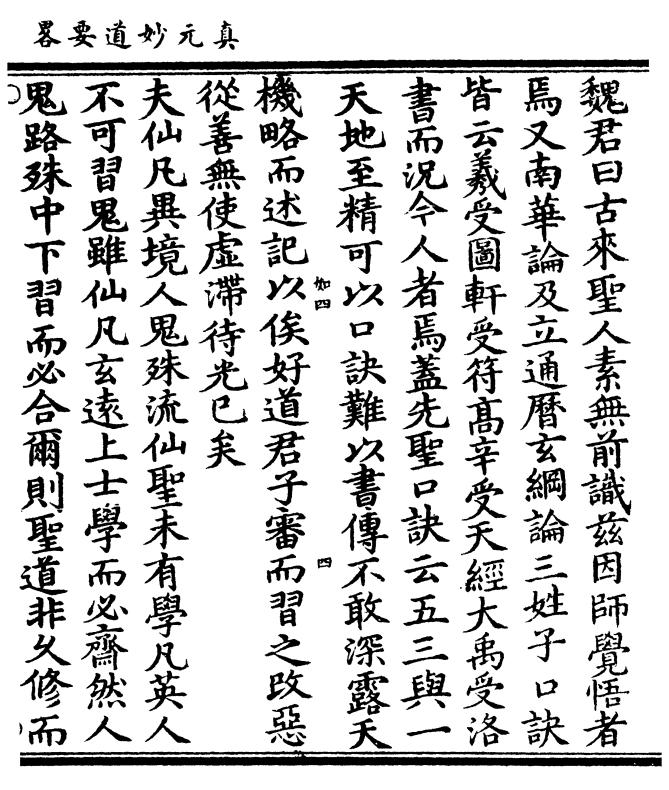 真元妙道要畧
魏君曰古來聖人素無前識茲因師覺悟者
焉又南華論及立通曆玄綱論三姓子口訣
皆云羲受圖軒受符高辛受天經大禹受洛
書而況今人者焉蓋先聖口訣云五三與一
天地至精可以口訣難以書傳不敢深露天
機略而述記以俟好道君子審而習之改惡
從善無使虛滯待光已矣
夫仙凡異境人鬼殊流仙聖未有學凡英人
不可習鬼雖仙凡玄遠上士學而必齋然人
鬼路殊中下習而必合爾則聖道非久修而
如四
四